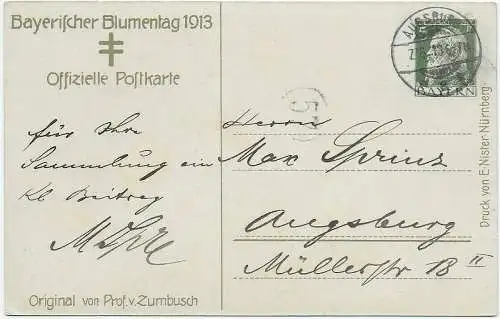 Bayerischer Blumentag 1913
Offizielle Postkarte
für Ihre
Sammlung ein
kl Beitrag
Original von Prof. v. Zumbusch
AUGSBURG
5
BAYERN
5
Herrn
Max Sprinz
Augsburg
Müllerstr 18 II
Druck von E. Nister Nürnberg.